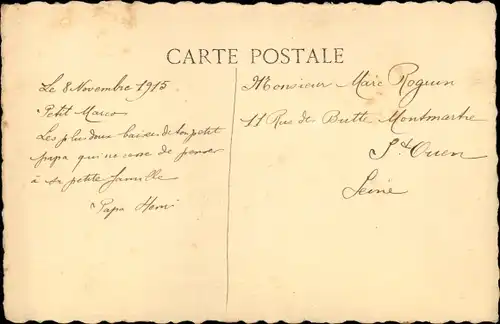 CARTE POSTALE
Le 8 Novembre 1915
Petit Marco
Les plus doux baisers de ton petit
papa qui ne cesse de penser
à sa petite famille
Papa Henri
Monsieur Marc Roguin
11 Rue des Butte Montmartre
St Ouen
Seine